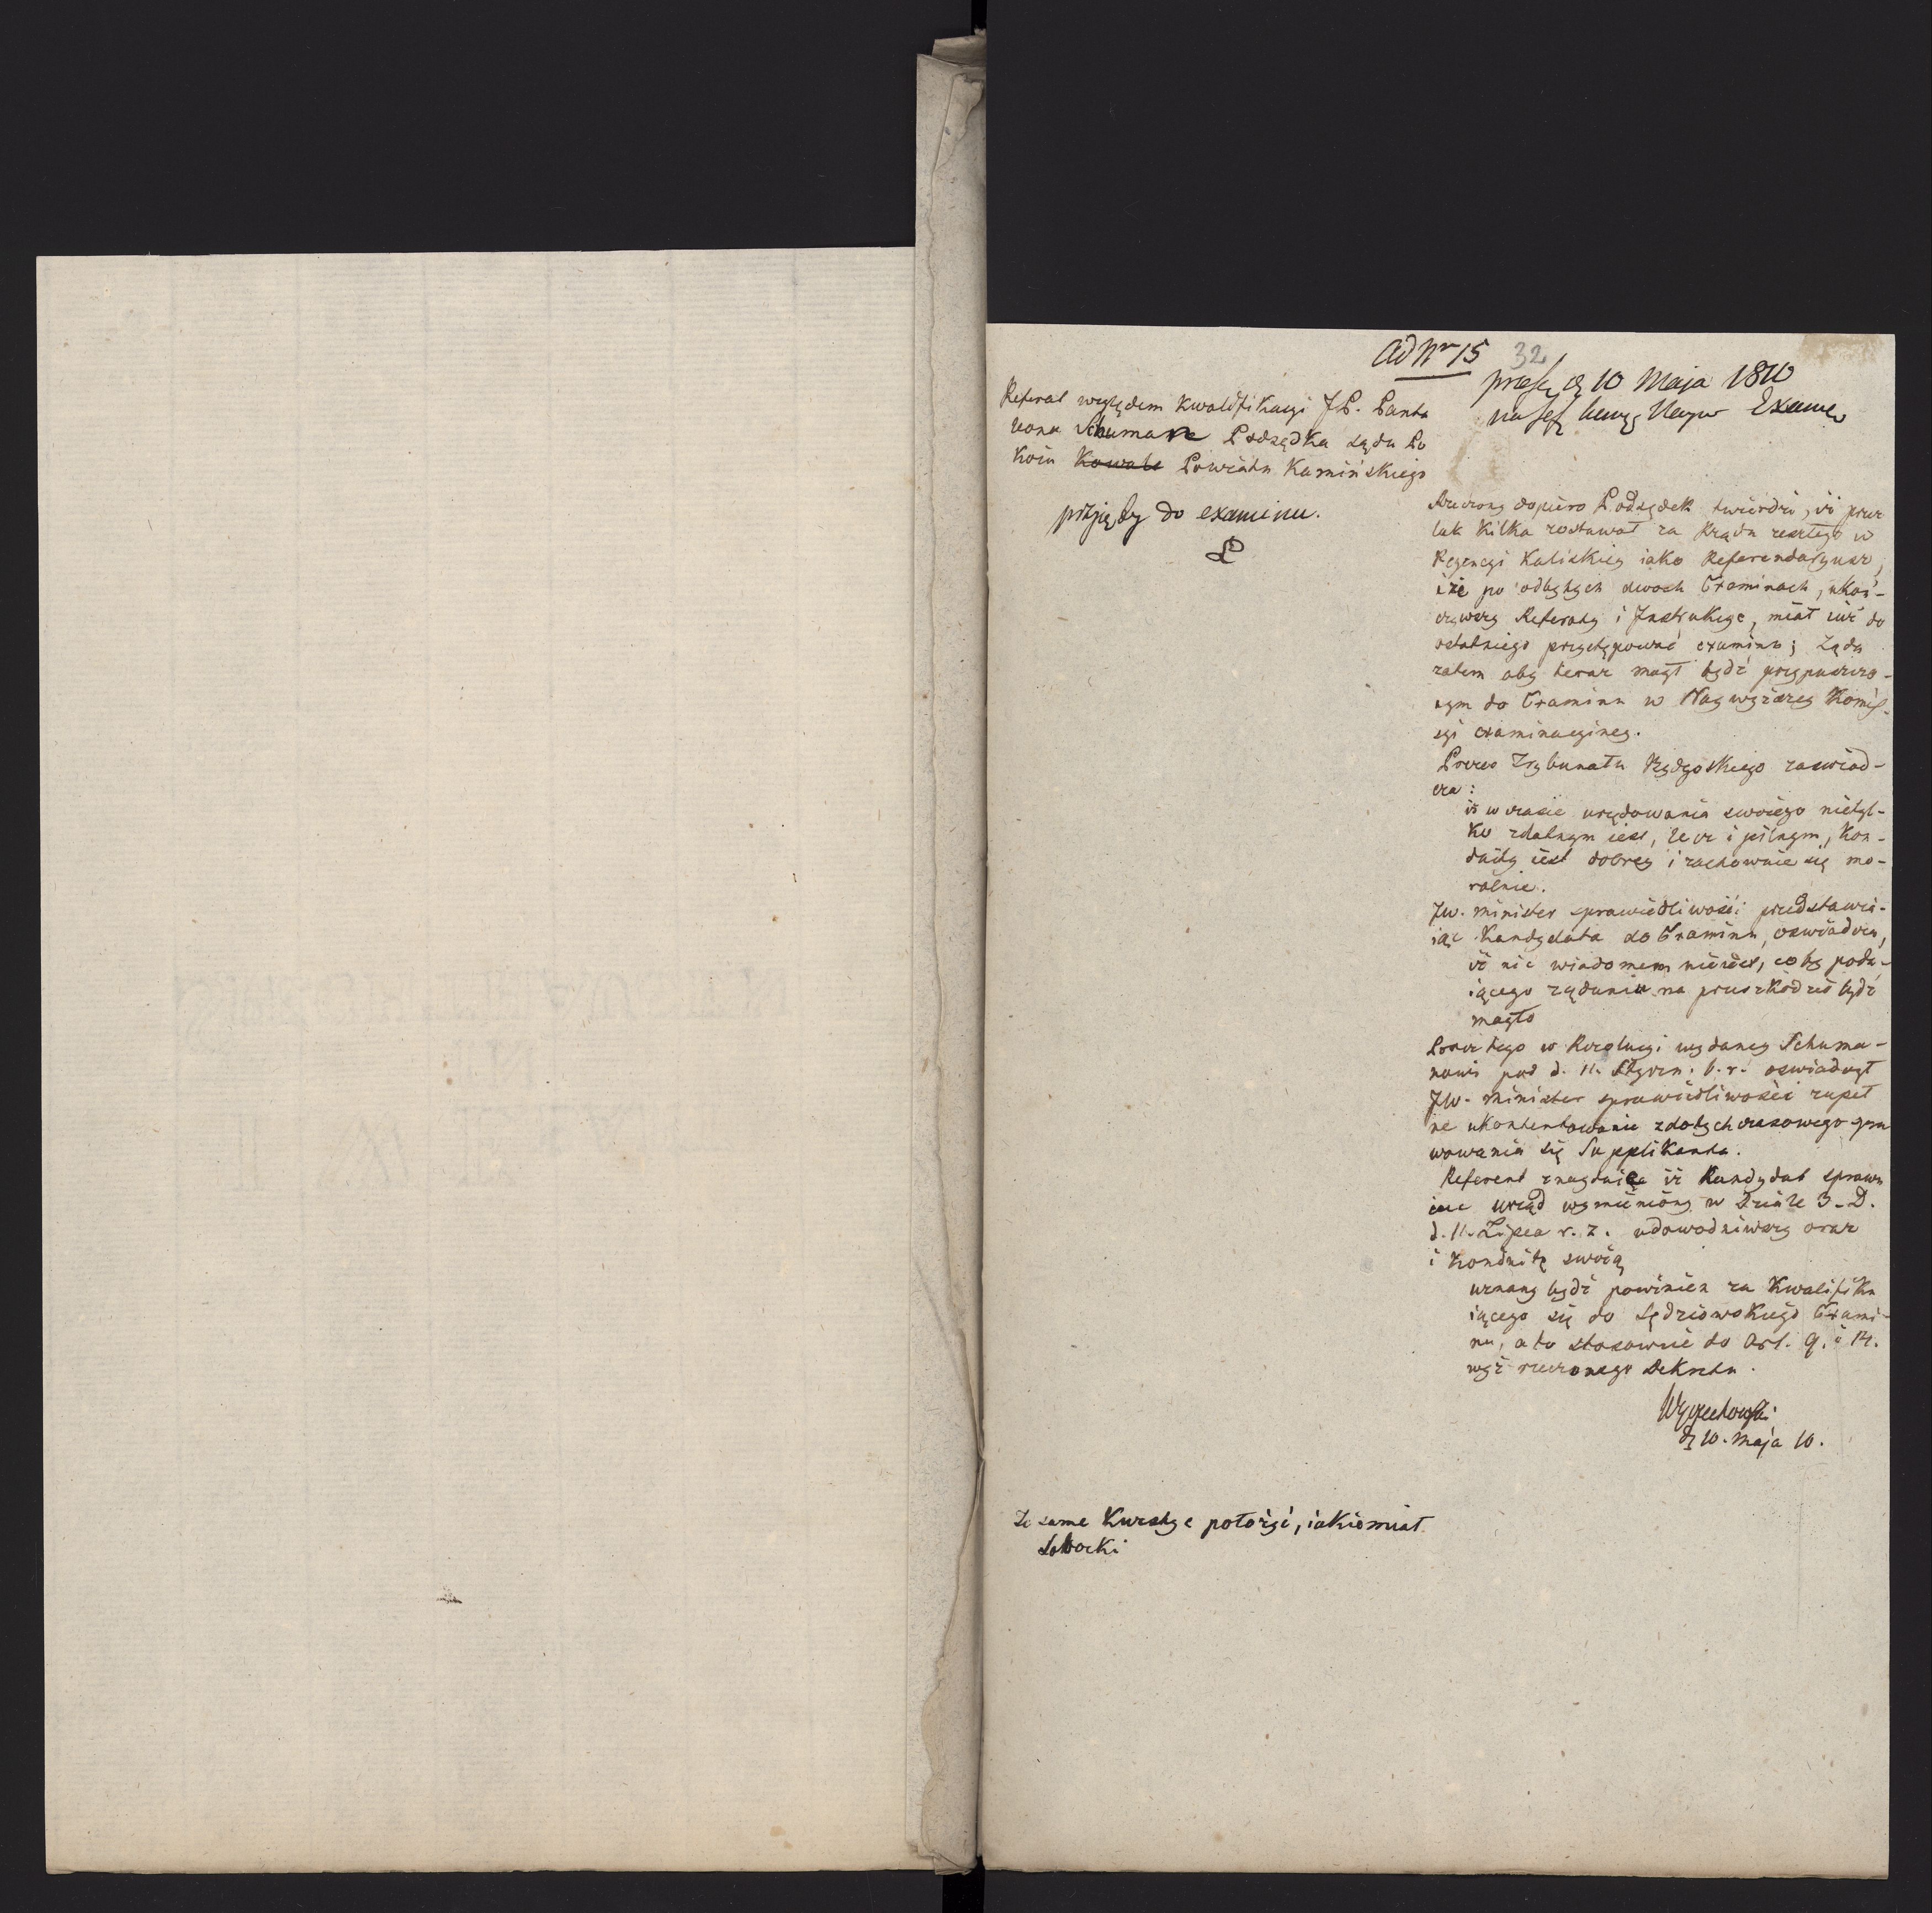 Ad Nro 15
32
d 10 Maja 1810
Examin
Referat względem kwalifikacyi JP. Panta
leona Schumann Podsędka Sądu Po
koiu Kowale Powiatu Kamińskiego
przyięty do examinu.
Rzeczony dopiero Podsędek twierdzi, iż przez
lat kilka zostawał za Rządu zeszłego w
Regencyi Kaliskiey iako Referendaryusz,
iże po odbytych dwoch Examinach, ukoń-
czywszy Referaty i Instrukcye, miał iuż do
ostatniego przystępować examinu; żąda
zatem aby teraz mogł bydź przypuszczo-
nym do Examinu w Naywyższey Komis-
syi examinacyiney.
Prezes Trybunału Bydgoskiego zaswiad-
cza:
iż w czasie urzędowania swoiego nietyl-
ko zdatnym iest, lecz i pilnym, kon-
duity iest dobrey i zachowuie się mo-
ralnie.
JW. Minister sprawiedliwości przedstawia-
iąc Kandydata do Examinu, oswiadcza,
iż nic wiadomem nie iest, coby poda-
iącego żądaniu na przeszkodzie bydź
mogło
Procz tego w Rezolucyi wydaney Schuma-
nowi pod d. 11. Stycz. b. r. oswiadczył
JW. Minister sprawiedliwości zupeł
ne ukontentowanie z dotychczasowego spra
wowania się Supplikanta.
Referent znayduie iż Kandydat sprawu
iąc urząd wymieniony w Dziale 3. D.
d. 11. Lipca r. z. udowodniwszy oraz
i konduitę swoią
uznany bydź powinien za kwalifiku
iącego się do Sędziowskiego Exami-
nu, a to stosownie do Art. 9. i 14.
wyż rzeczonego Dekretu.
Wyczechowski
d 10. Maja 10.
Te same kwestye położyć, iakie miał
Sobocki